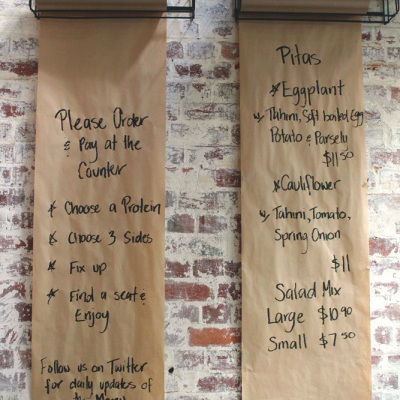 Please Order
& Pay at the
Counter
* Choose a Protein
* Choose 3 Sides
* Fix up
* Find a seat &
Enjoy
Follow us on Twitter
for daily updates of
the Menu
Pitas
* Eggplant
w/ Tahini, Soft boiled Egg
Potato & Parsely
$11.50
* Cauliflower
w/ Tahini, Tomato,
Spring Onion
$11
Salad Mix
Large $10.90
Small $7.50